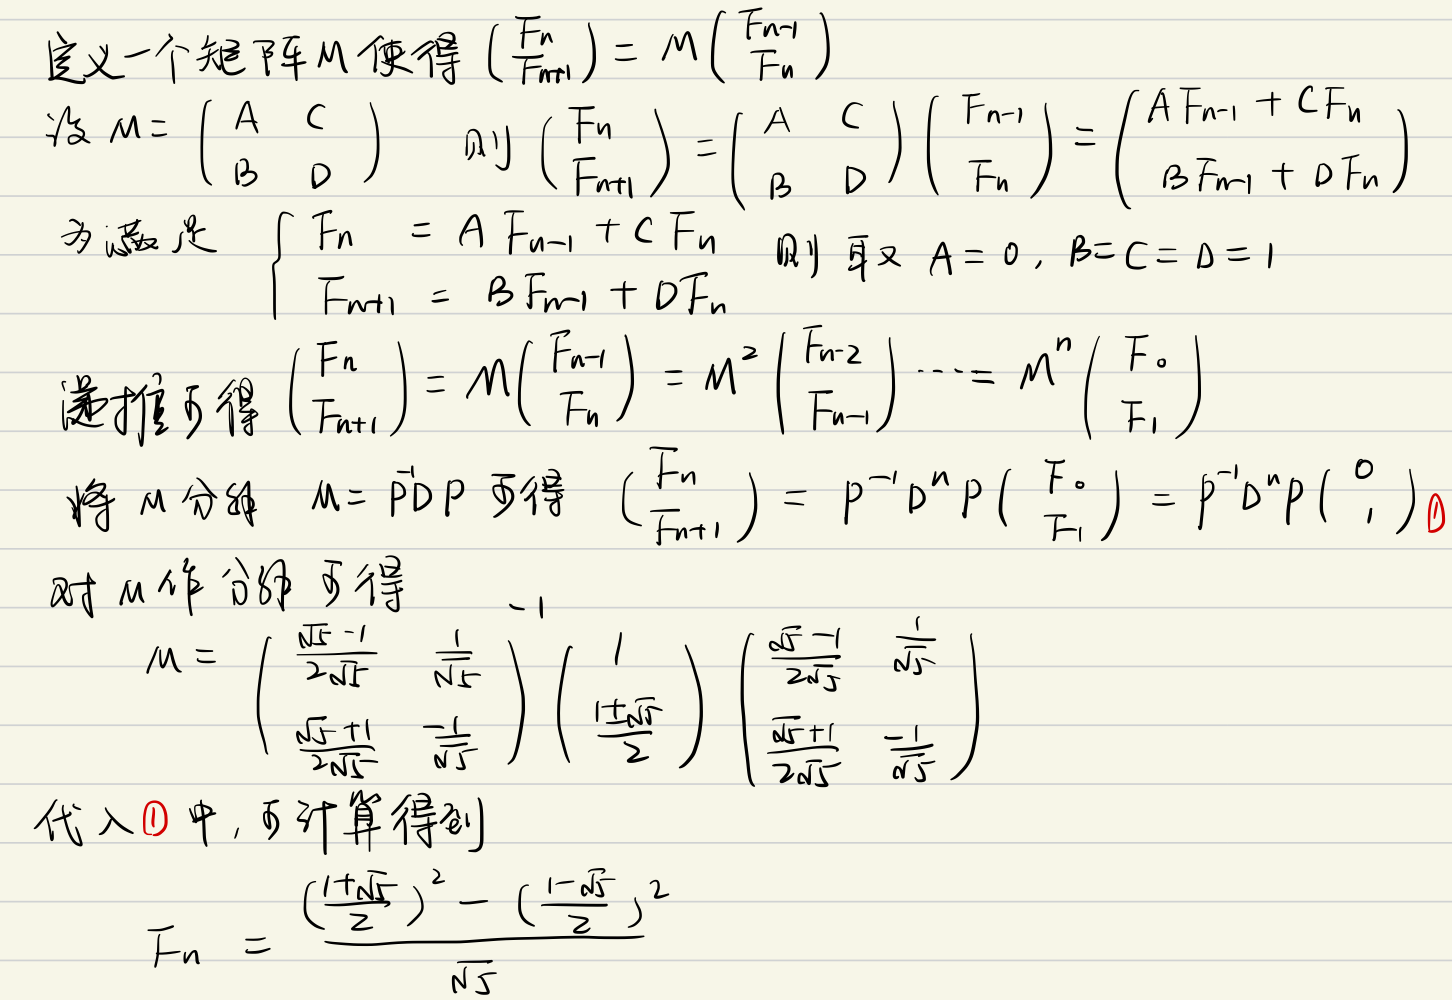 定义一个矩阵M使得 (F_n; F_{n+1}) = M (F_{n-1}; F_n)
设 M = (A C; B D) 则 (F_n; F_{n+1}) = (A C; B D) (F_{n-1}; F_n) = (AF_{n-1} + CF_n; BF_{n-1} + DF_n)
为满足 { F_n = A F_{n-1} + C F_n; F_{n+1} = B F_{n-1} + D F_n 则取 A = 0, B = C = D = 1
递推可得 (F_n; F_{n+1}) = M (F_{n-1}; F_n) = M^2 (F_{n-2}; F_{n-1}) ⋯ = M^n (F_0; F_1)
将 M 分解 M = P^{-1}DP 可得 (F_n; F_{n+1}) = P^{-1} D^n P (F_0; F_1) = P^{-1} D^n P (0; 1) ①
对 M 作分解可得
M = ((√5-1)/(2√5) 1/√5; (√5+1)/(2√5) -1/√5)^{-1} (1; (1+√5)/2) ((√5-1)/(2√5) 1/√5; (√5+1)/(2√5) -1/√5)
代入①中,可计算得到
F_n = (((1+√5)/2)^2 - ((1-√5)/2)^2)/√5